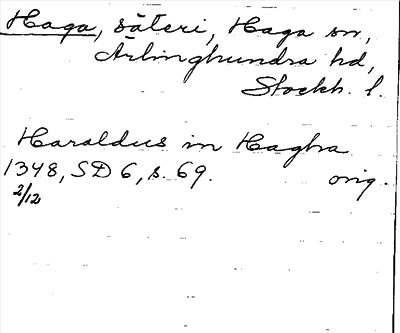 Haga, säteri, Haga sn,
Ärlinghundra hd,
Stockh. l.
Haraldus in Hagha
1348, SD 6, s. 69. orig.
2/12